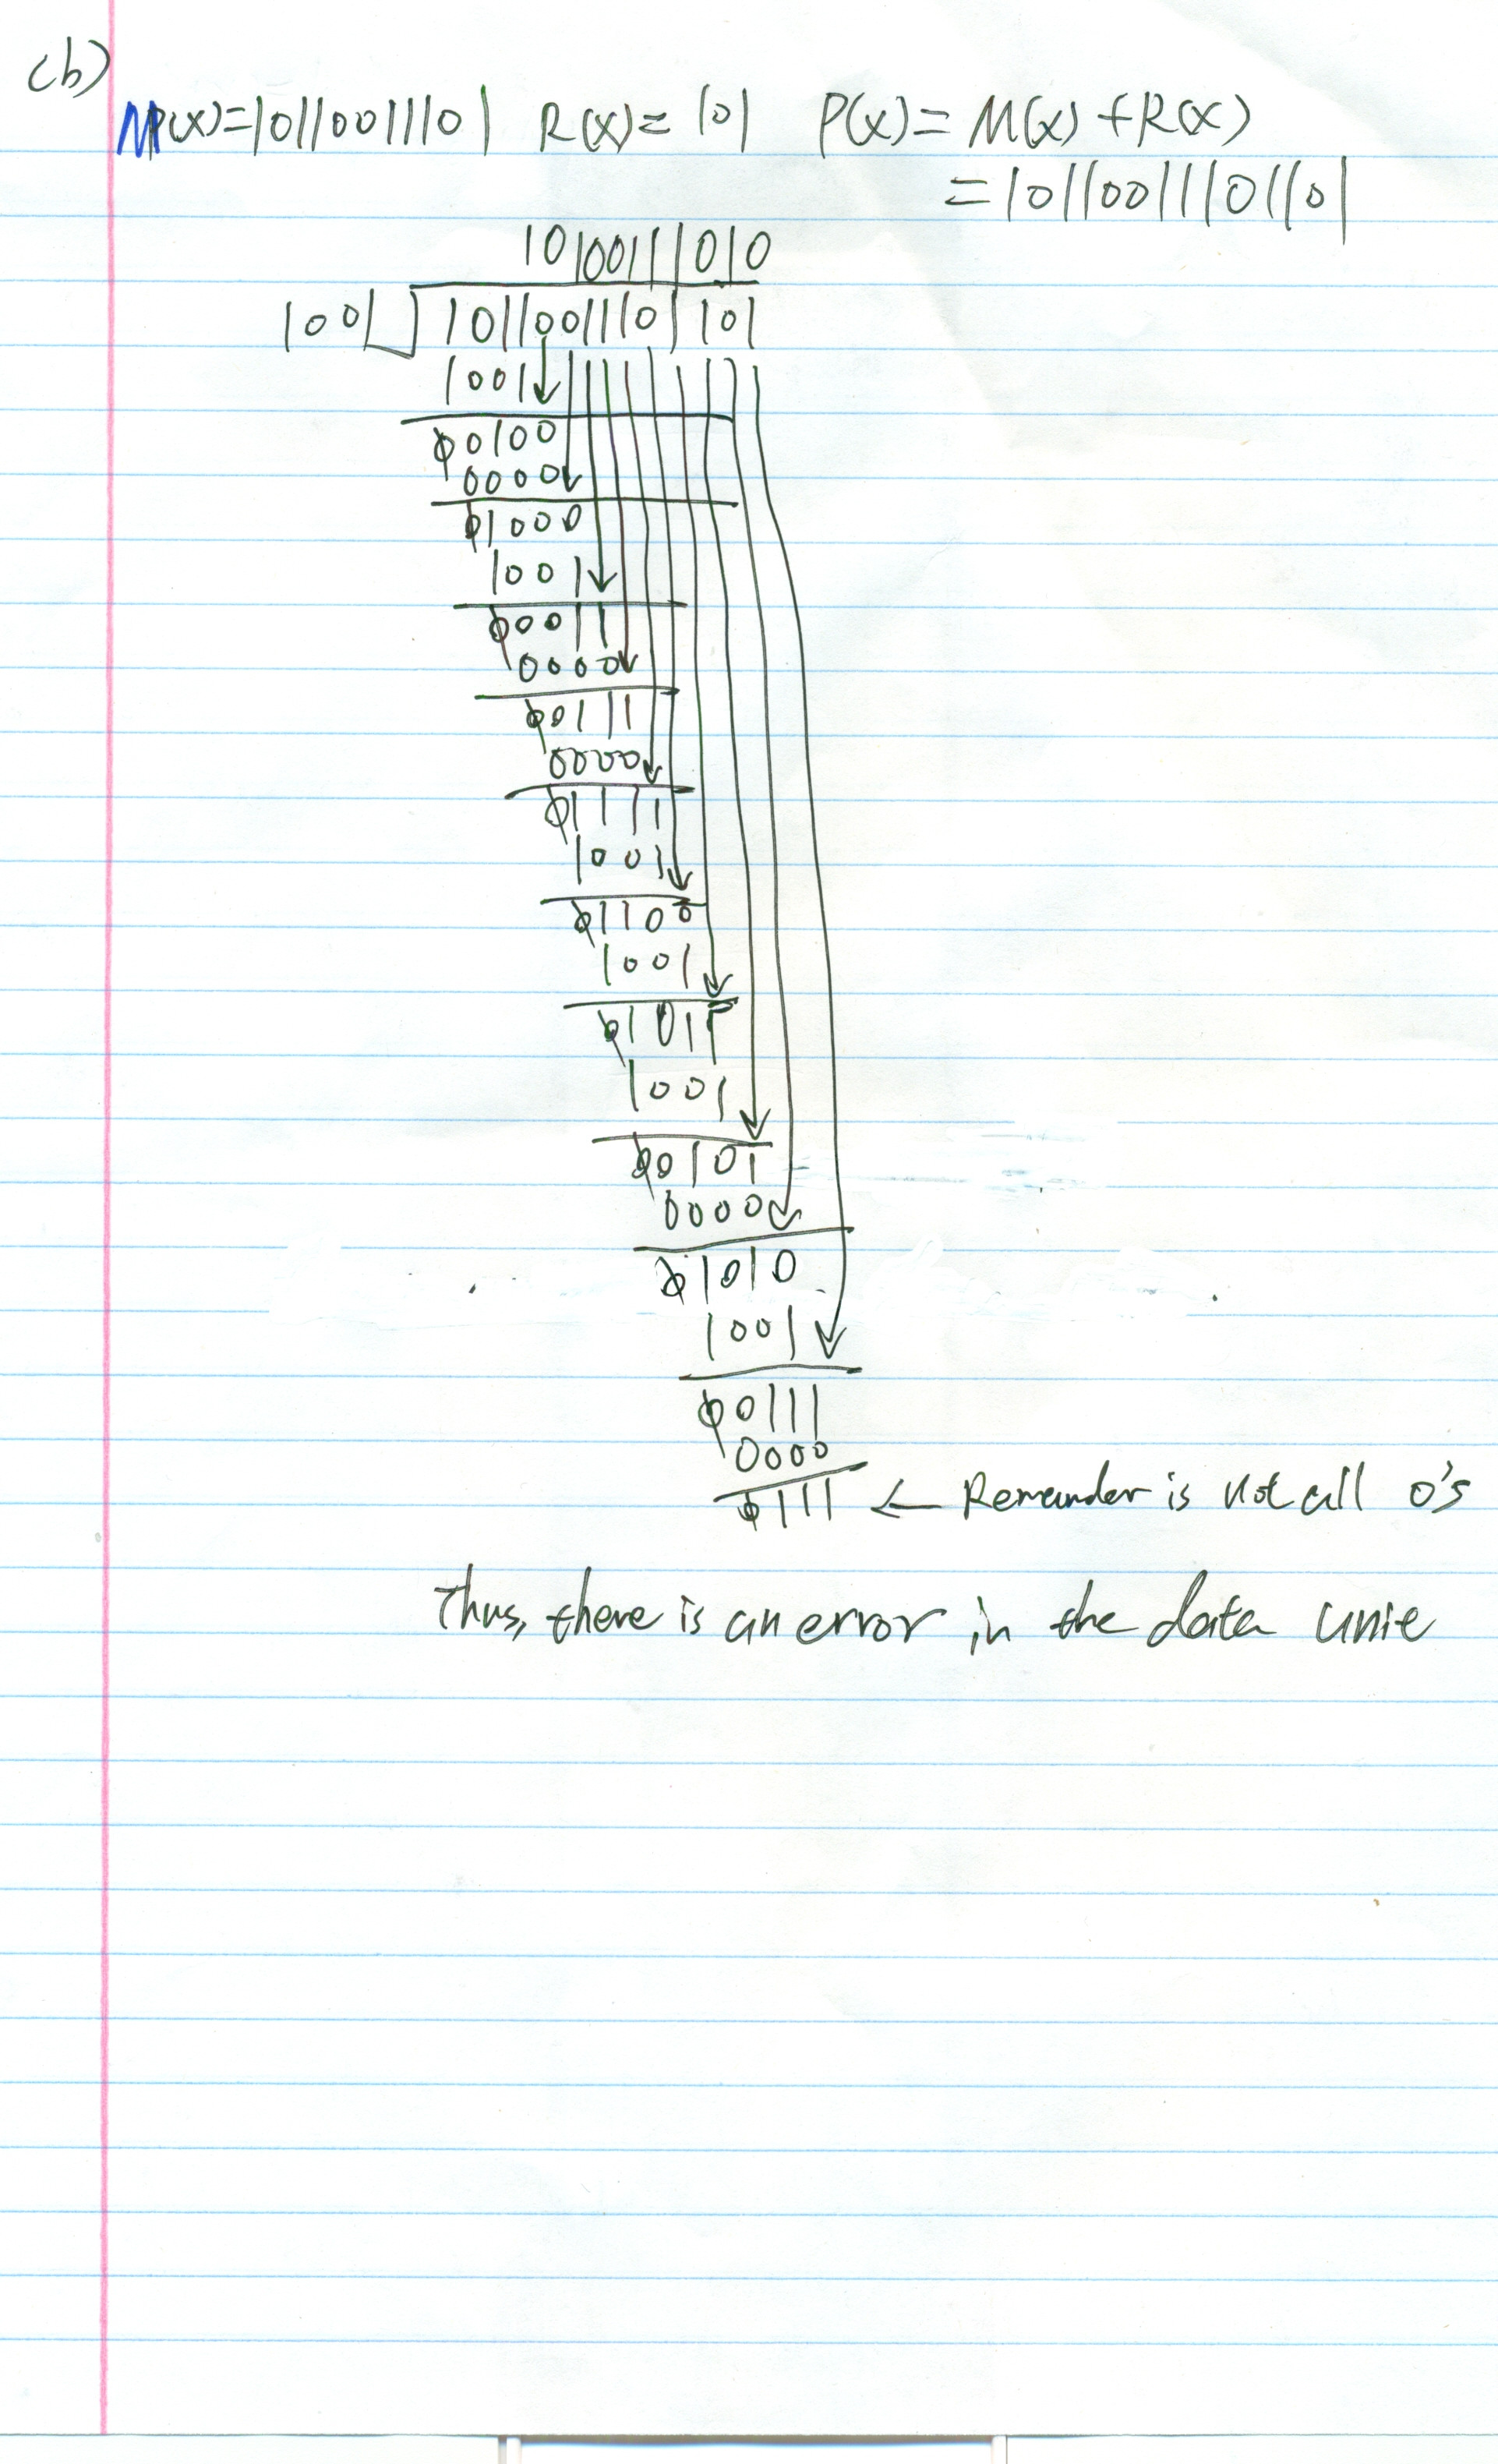 (b)
M(x)=10110011101 R(x)= 101 P(x)= M(x)+R(x)
=10110011101101
10100111010
1001 10110011101 101
1001
00100
0000
01000
1001
00011
0000
00111
0000
01111
1001
01100
1001
01011
1001
00101
0000
01010
1001
00111
0000
0111 ← Remainder is not all 0's
Thus, there is an error in the data unit